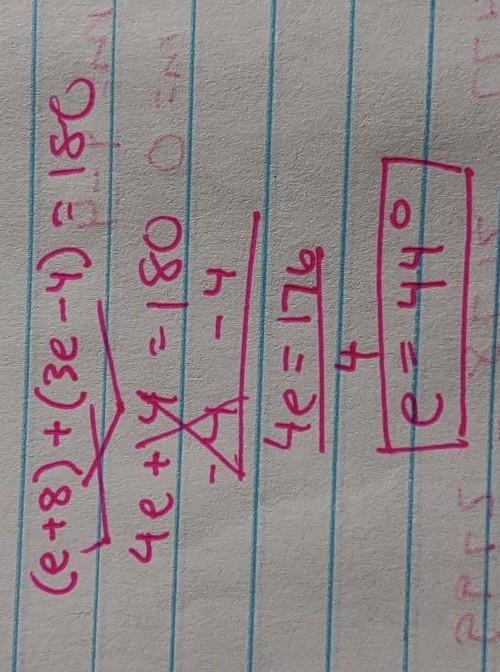 (e+8)+(3e-4)=180
4e+4=180
-4 -4
4e=176
4
e=44°